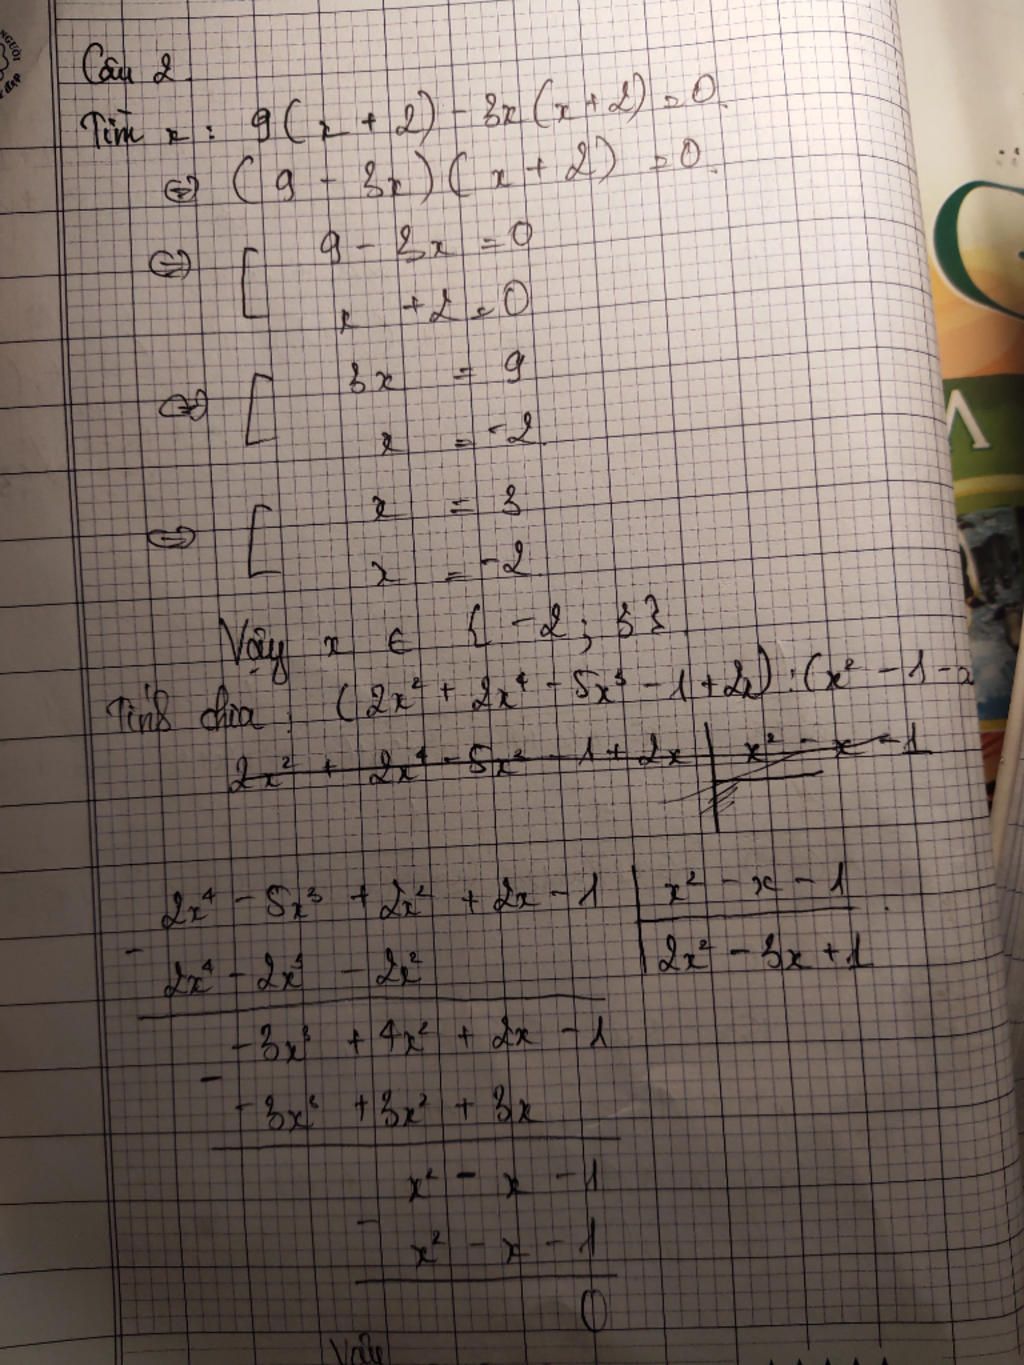 Câu 2
Tìm x : 9(x + 2) - 3x(x + 2) = 0.
⇔ (9 - 3x)(x + 2) = 0.
⇔ [ 9 - 3x = 0
x + 2 = 0
⇔ [ 3x = 9
x = -2
⇔ [ x = 3
x = -2
Vậy x ∈ { -2 ; 3 }
Tính chia : (2x² + 2x⁴ - 5x³ - 1 + 2x) : (x² - 1 - x
2x² + 2x⁴ - 5x³ - 1 + 2x | x² - x - 1
2x⁴ - 5x³ + 2x² + 2x - 1 | x² - x - 1
- 2x⁴ - 2x³ - 2x² | 2x² - 3x + 1
-3x³ + 4x² + 2x - 1
- -3x³ + 3x² + 3x
x² - x - 1
- x² - x - 1
0
Vậy